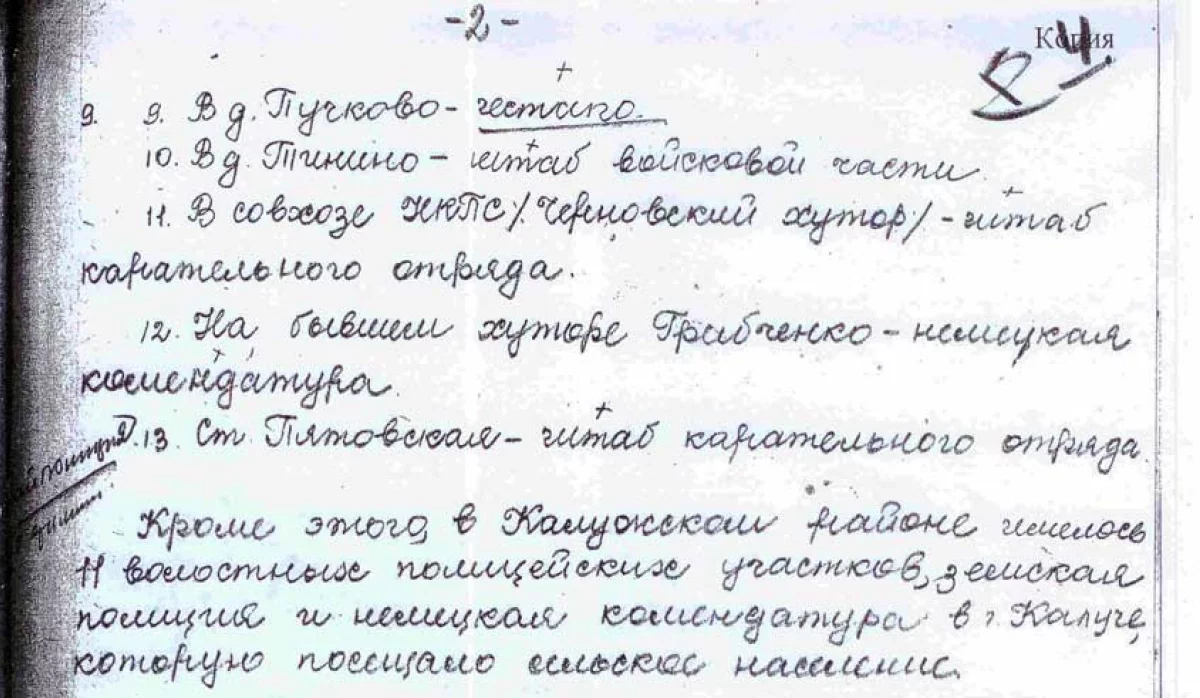 -2-
Копия
4.
9. 9. В д. Пучково - гестапо.
10. В д. Тинино - штаб войсковой части.
11. В совхозе НКПС /Черновский хутор/ - штаб
карательного отряда.
12. На бывшем хуторе Грибченко - немецкая
комендатура.
13. Ст. Пятовская - штаб карательного отряда.
Кроме этого, в Калужском районе имелось
11 волостных полицейских участков, земская
полиция и немецкая комендатура в г. Калуге,
которую посещало сельское население.